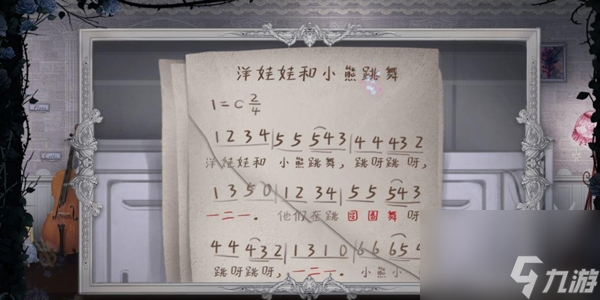 洋娃娃和小熊跳舞
1=C 2/4
1 2 3 4 | 5 5 5 4 3 | 4 4 4 3 2
洋娃娃和 小熊跳舞, 跳呀跳呀,
1 3 5 0 | 1 2 3 4 | 5 5 5 4 3
一二一. 他们在跳 圆圈舞 呀
4 4 4 3 2 | 1 3 1 0 | 6 6 6 5 4
跳呀跳呀, 一二一. 小熊小
九游